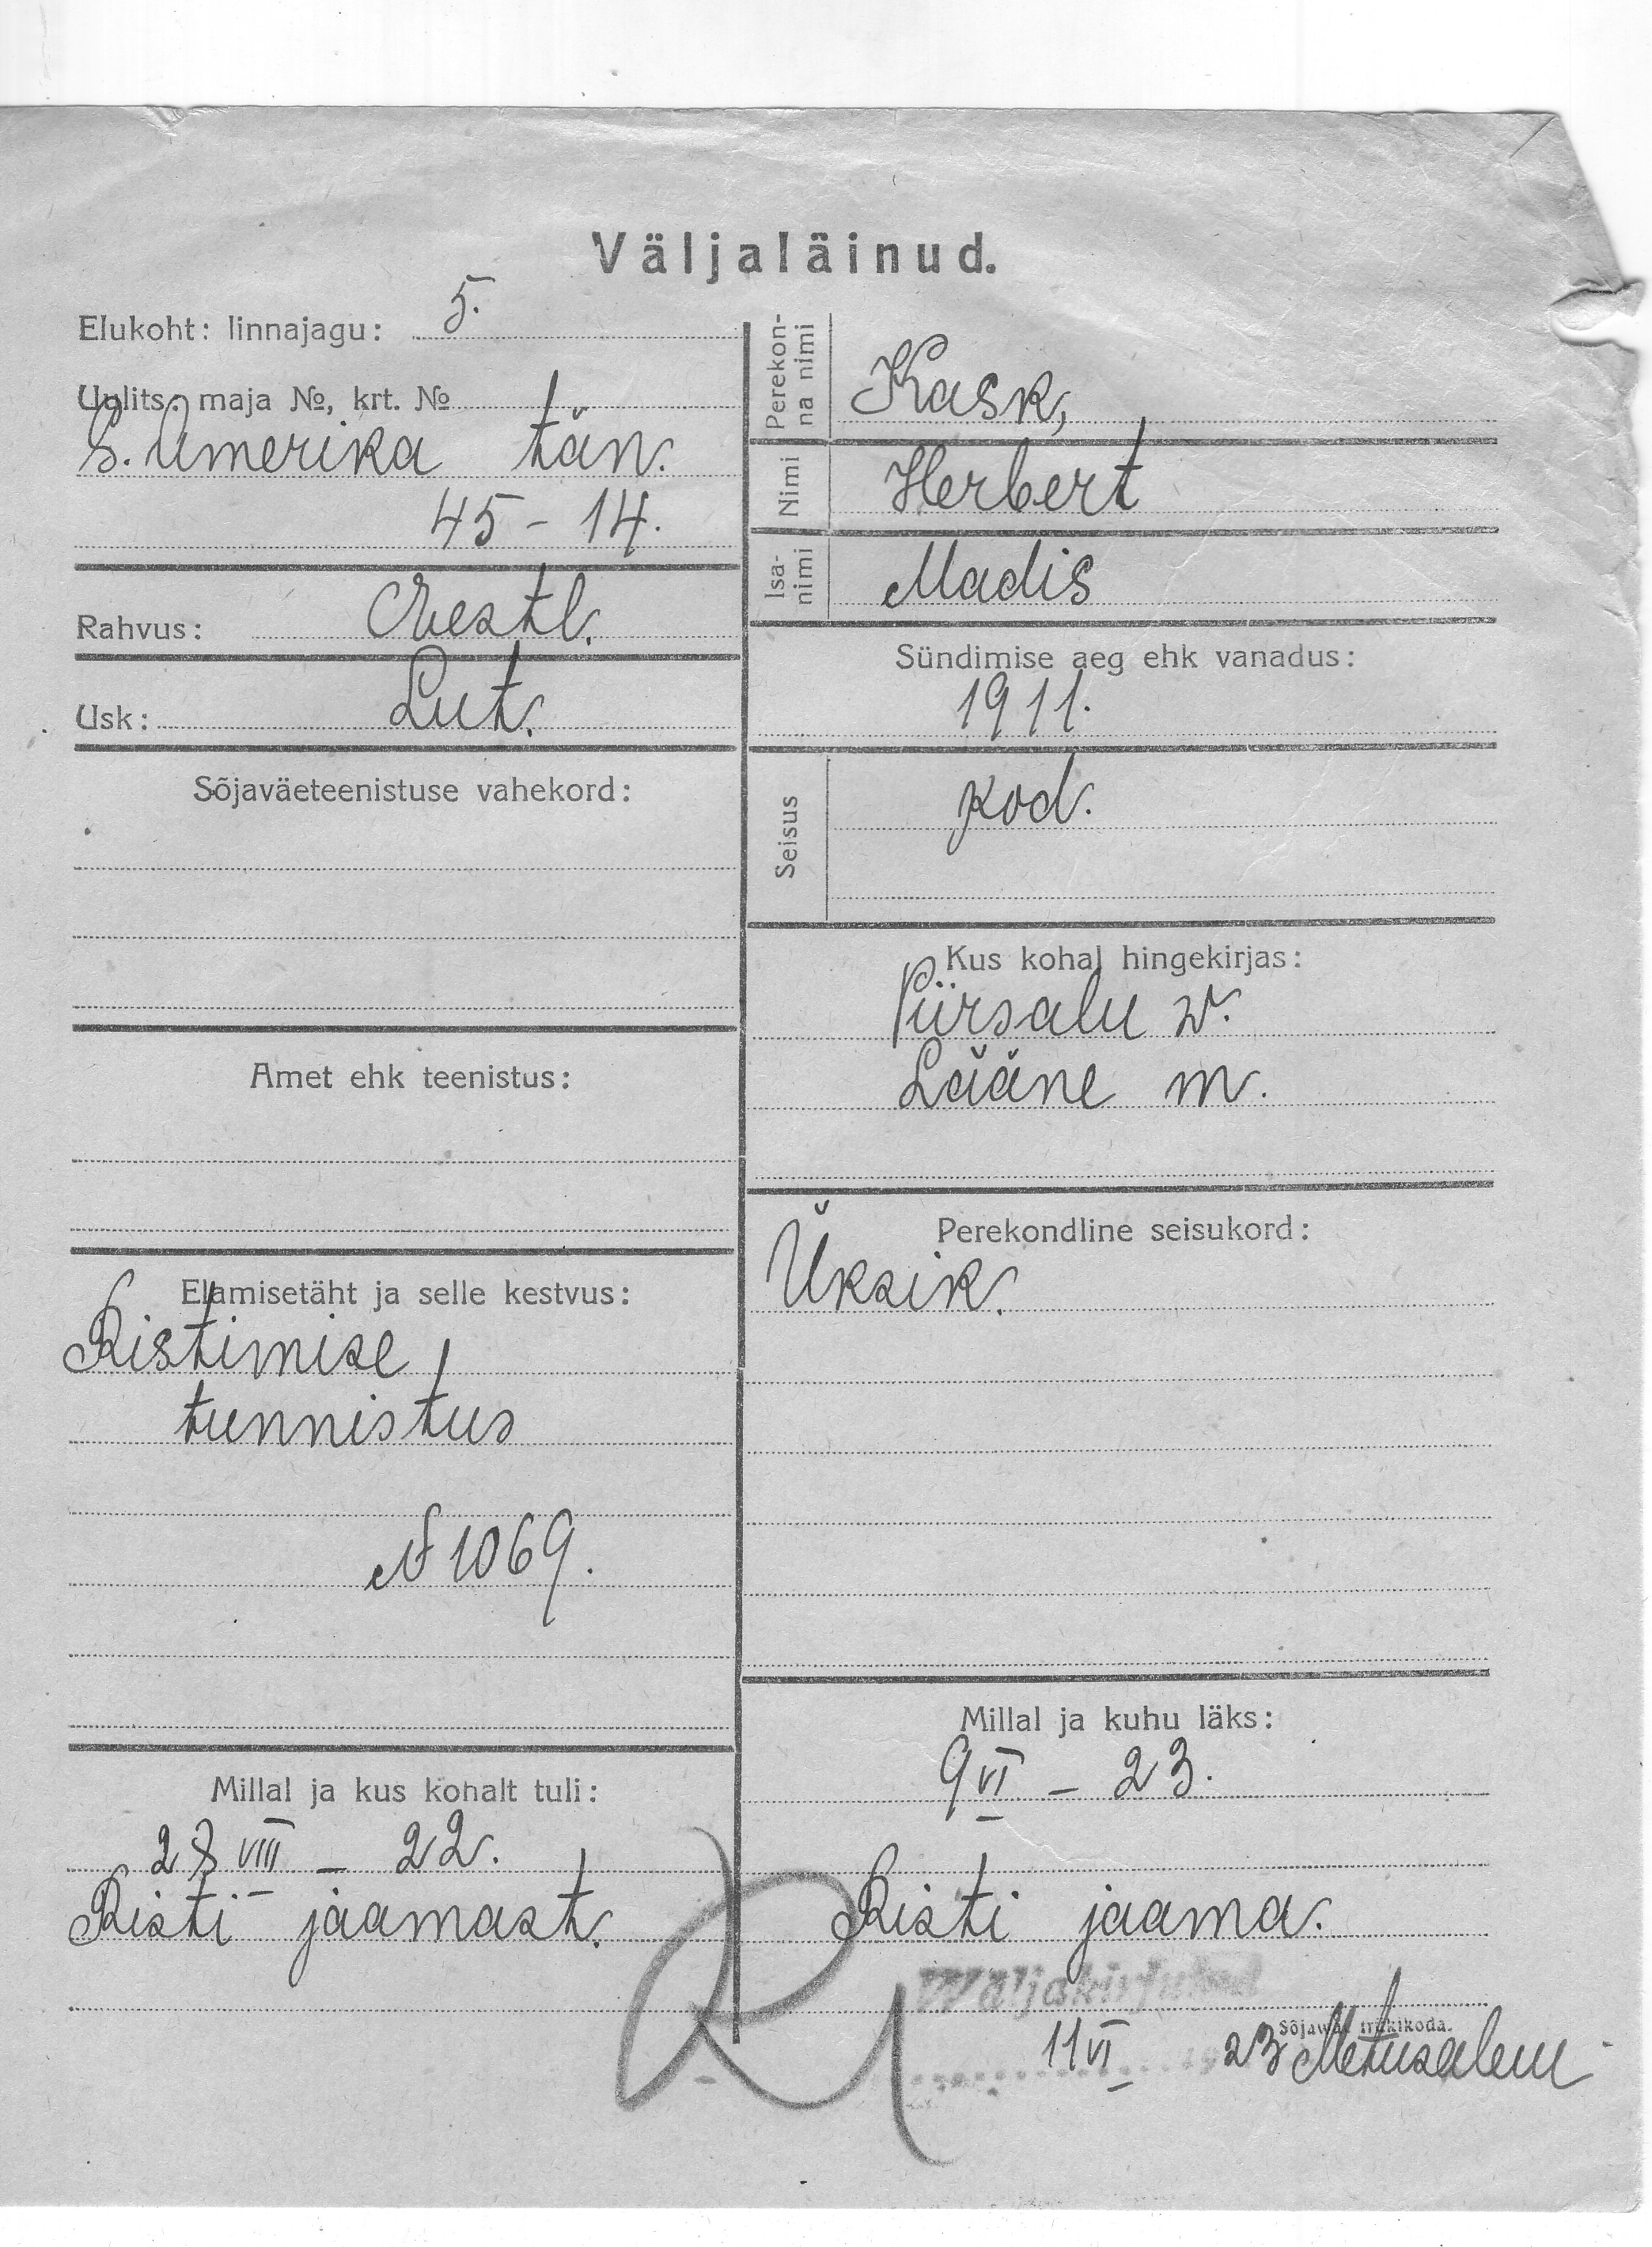 Väljaläinud.
Elukoht: linnajagu: 5.
Uulits, maja №, krt. №
S. Amerika tän.
45 - 14.
Rahvus: Eestl.
Usk: Lut.
Sõjaväeteenistuse vahekord:
Amet ehk teenistus:
Elamisetäht ja selle kestvus:
Ristimise
tunnistus
N 1069.
Millal ja kus kohalt tuli:
28 VIII - 22.
Risti jaamast.
Perekonna nimi Kask,
Nimi Herbert
Isanimi Madis
Sündimise aeg ehk vanadus:
1911.
Seisus kod.
Kus kohal hingekirjas:
Piirsalu w.
Lääne m.
Perekondline seisukord:
Üksik.
Millal ja kuhu läks:
9 VI - 23.
Risti jaama.
Wäljakirjutud
Sõjawäe trükikoda.
11 VI 23 Metusalem